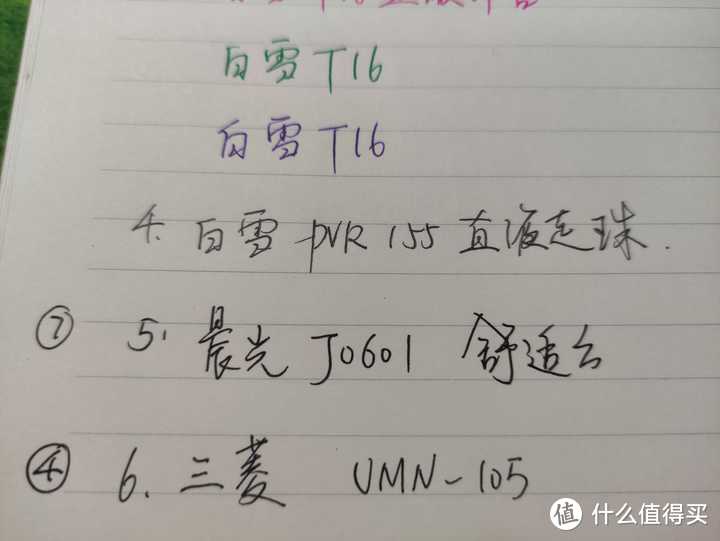 白雪 T16
白雪 T16
4. 白雪 PVR 155 直液走珠.
⑦ 5. 晨光 J0601 舒适台
④ 6. 三菱 UMN-105
值 什么值得买